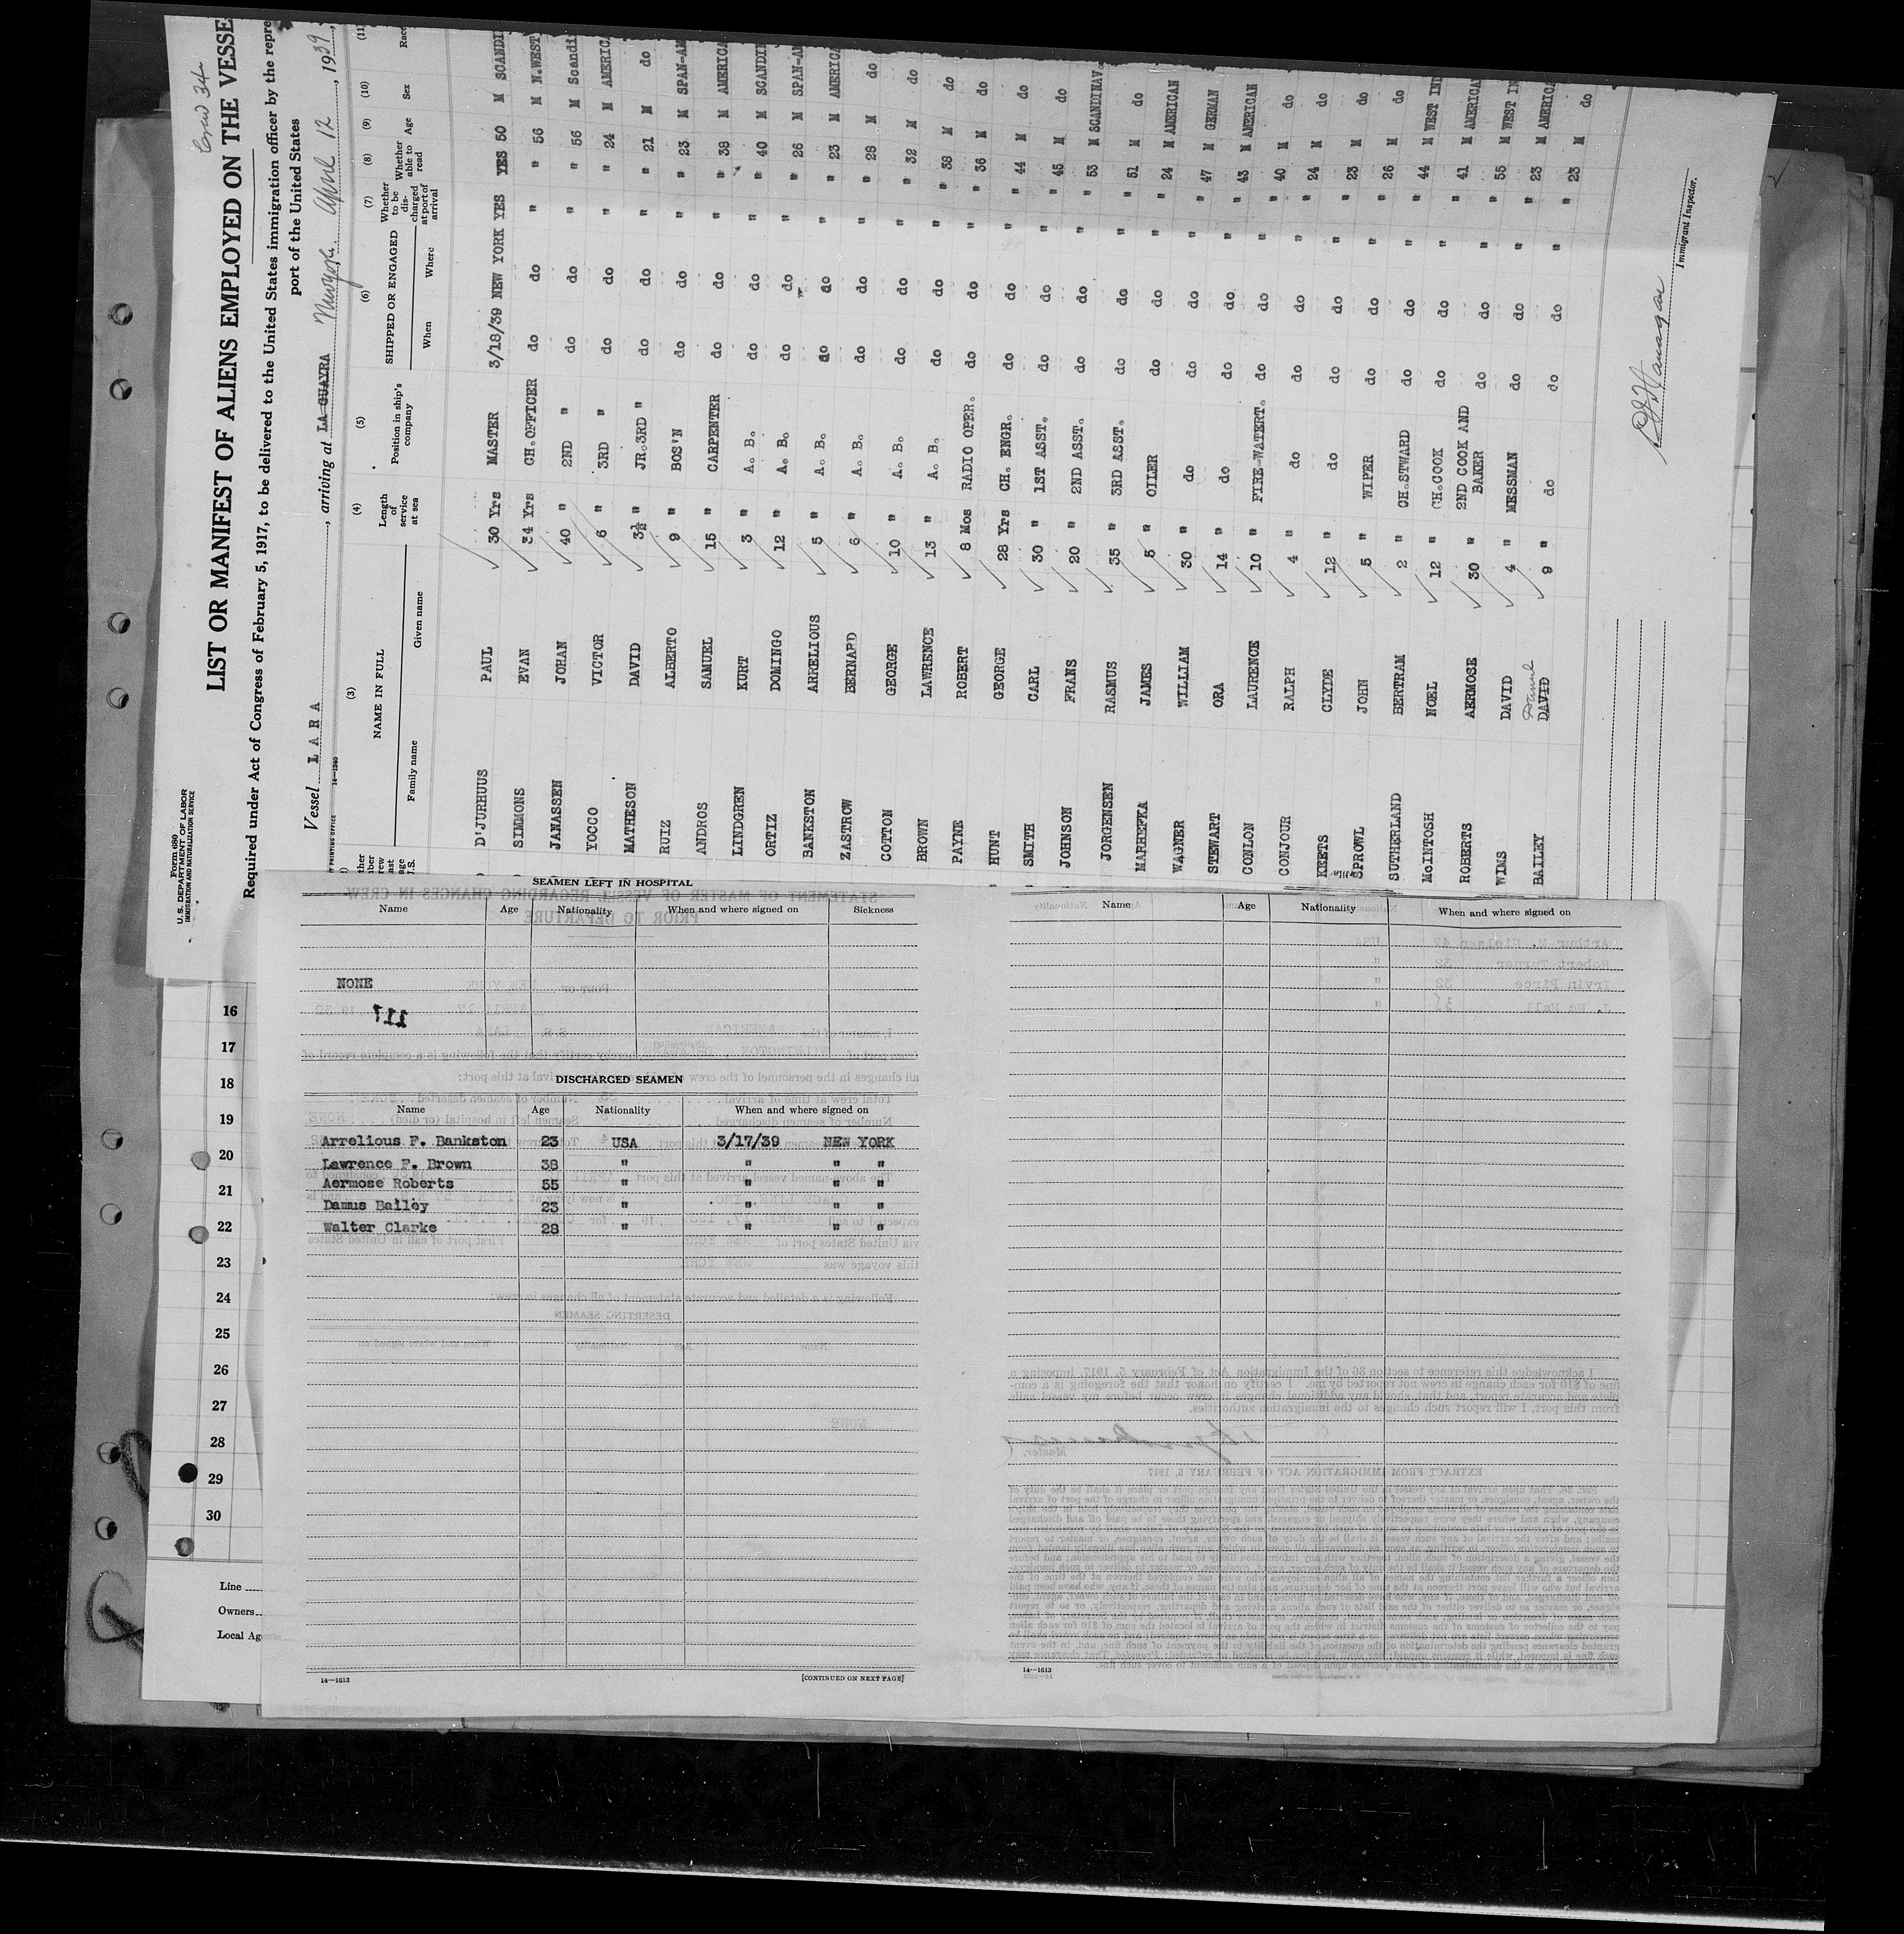 Crew 34
LIST OR MANIFEST OF ALIENS EMPLOYED ON THE VESSE
Form 680
U.S. DEPARTMENT OF LABOR
IMMIGRATION AND NATURALIZATION SERVICE
Required under Act of Congress of February 5, 1917, to be delivered to the United States immigration officer by the repre
port of the United States
Vessel LARA, arriving at LA GUAYRA New York, April 12, 1939,
PRINTING OFFICE 14—1240
(3) (4) (5) (6) (7) (8) (9) (10) (11)
NAME IN FULL Length of service at sea Position in ship's company SHIPPED OR ENGAGED Whether to be discharged at port of arrival Whether able to read Age Sex Race
Family name Given name When Where
D'JURHUUS PAUL 30 Yrs MASTER 3/18/39 NEW YORK YES YES 50 M SCANDI
SIMMONS EVAN 34 Yrs CH.OFFICER do do " " 56 M N.WEST
JANASSEN JOHAN 40 " 2ND " do do " " 56 M Scandi
YOCCO VICTOR 6 " 3RD " do do " " 24 M AMERICA
MATHESON DAVID 3½ " JR.3RD " do do " " 21 M do
RUIZ ALBERTO 9 " BOS'N do do " " 23 M SPAN-AM
ANDROS SAMUEL 15 " CARPENTER do do " " 38 M AMERICA
LINDGREN KURT 3 " A. B. do do " " 40 M SCANDIN
ORTIZ DOMINGO 12 " A. B. do do " " 26 M SPAN-AM
BANKSTON ARRELIOUS 5 " A. B. do do " " 23 M AMERICA
ZASTROW BERNARD 6 " A. B. do do " " 28 M do
COTTON GEORGE 10 " A. B. do do " " 32 M do
BROWN LAWRENCE 13 " A. B. do do " " 38 M do
PAYNE ROBERT 8 Mos RADIO OPER. do do " " 36 M do
HUNT GEORGE 28 Yrs CH. ENGR. do do " " 44 M do
SMITH CARL 30 " 1ST ASST. do do " " 45 M do
JOHNSON FRANS 20 " 2ND ASST. do do " " 53 M SCANDINAV.
JORGENSEN RASMUS 35 " 3RD ASST. do do " " 51 M do
MARHEFKA JAMES 5 " OILER do do " " 24 M AMERICAN
WAGNER WILLIAM 30 " do do do " " 47 M GERMAN
STEWART ORA 14 " do do do " " 43 M AMERICAN
CONLON LAURENCE 10 " FIRE-WATERT. do do " " 40 M do
CONJOUR RALPH 4 " do do do " " 24 M do
KEETS CLYDE 12 " do do do " " 23 M do
SPROWL JOHN 5 " WIPER do do " " 26 M do
SUTHERLAND BERTRAM 2 " CH.STWARD do do " " 44 M WEST IND
McINTOSH NOEL 12 " CH.COOK do do " " 41 M AMERICAN
ROBERTS AERMOSE 30 " 2ND COOK AND BAKER do do " " 55 M WEST IN
WIMS DAVID 4 " MESSMAN do do " " 23 M AMERICA
BAILEY DAVID 9 " do do do " " 23 M do
Immigrant Inspector.
SEAMEN LEFT IN HOSPITAL
Name Age Nationality When and where signed on Sickness
NONE
117
DISCHARGED SEAMEN
Name Age Nationality When and where signed on
Arrelious F. Bankston 23 USA 3/17/39 NEW YORK
Lawrence F. Brown 38 " " " "
Aermose Roberts 55 " " " "
Damus Bailey 23 " " " "
Walter Clarke 28 " " " "
14—1613 [CONTINUED ON NEXT PAGE]
Name Age Nationality When and where signed on
14—1613
16
17
18
19
20
21
22
23
24
25
26
27
28
29
30
Line
Owners
Local Ag